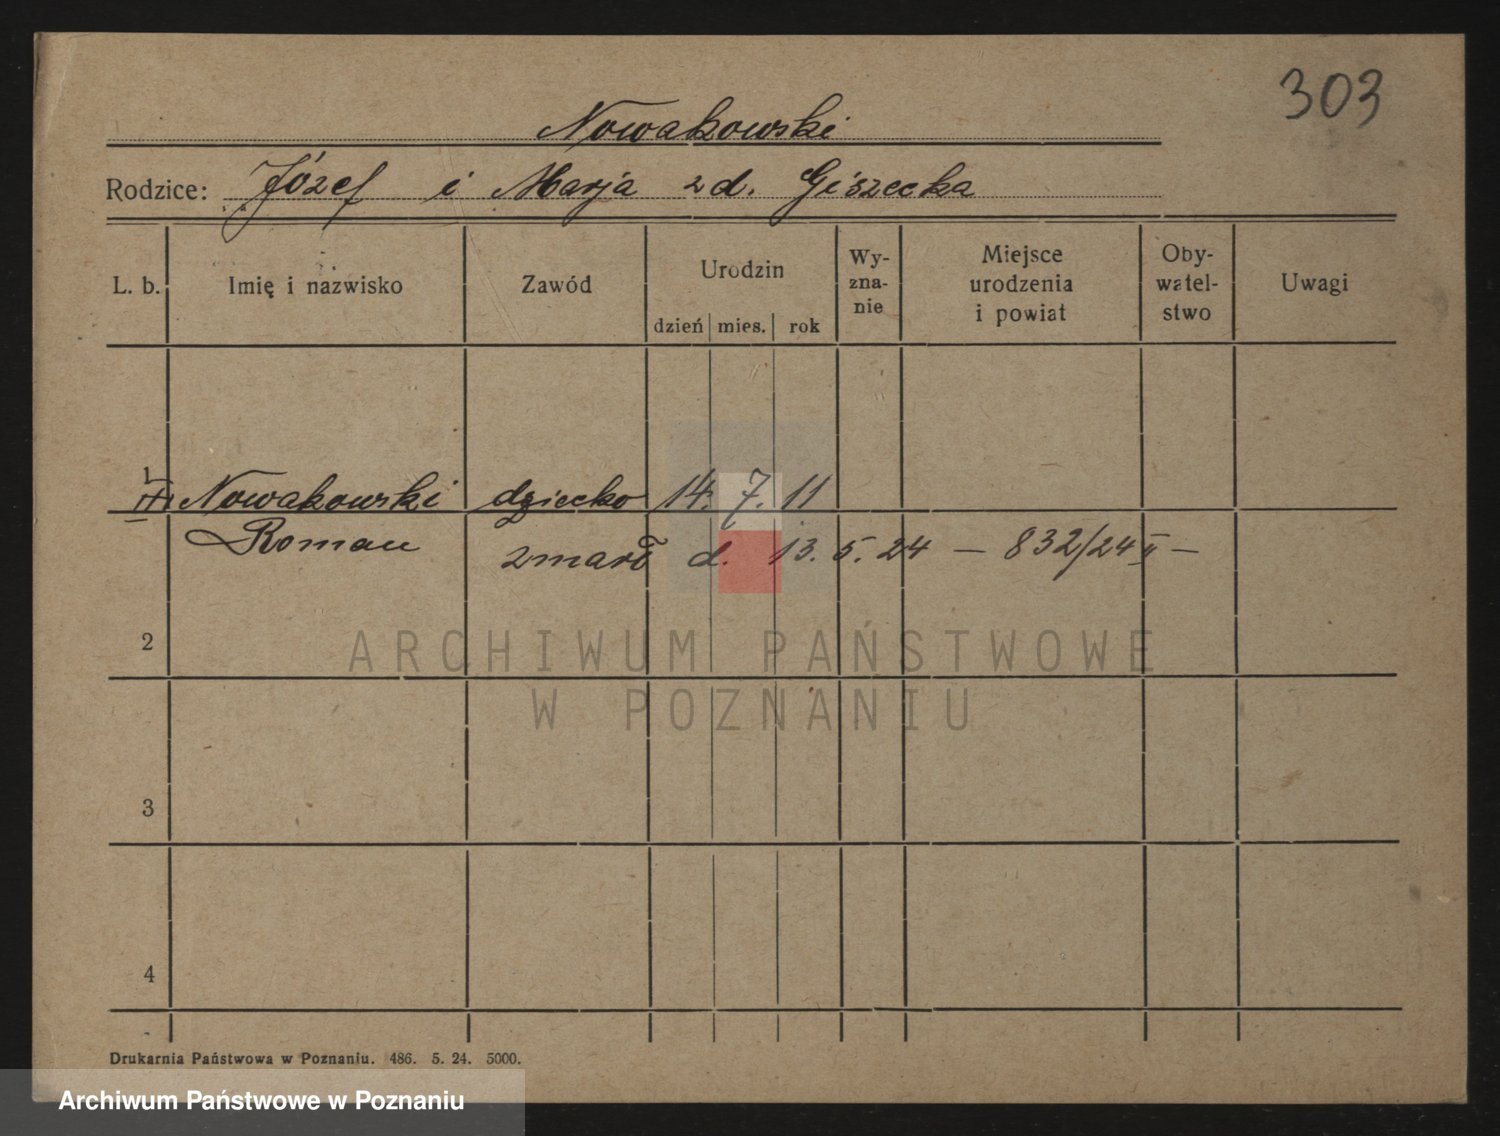 303
Nowakowski
Rodzice: Józef i Marja zd. Giszecka
L. b. Imię i nazwisko Zawód Urodzin dzień mies. rok Wy-zna-nie Miejsce urodzenia i powiat Oby-watel-stwo Uwagi
1
II Nowakowski dziecko 14. 7. 11
Roman zmarł d. 13. 5. 24 — 832/24 II —
2
ARCHIWUM PAŃSTWOWE
W POZNANIU
3
4
Drukarnia Państwowa w Poznaniu. 486. 5. 24. 5000.
Archiwum Państwowe w Poznaniu